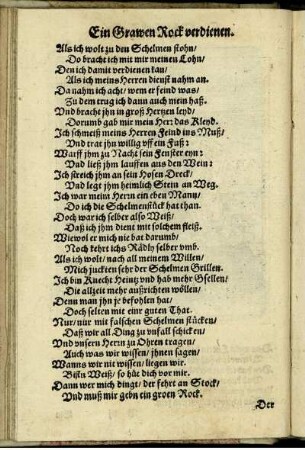 Ein Grawen Rock verdienen.
Als ich wolt zu den Schelmen stohn/
Do bracht ich mit mir meinen Lohn/
Den ich damit verdienen kan/
Als ich meins Herren dienst nahm an.
Da nahm ich acht/ wem er feind was/
Zu dem trug ich dann auch mein haß.
Vnd bracht jhn in groß Hertzen leyd/
Dorumb gab mir mein Herr das Kleyd.
Ich schmeiß meins Herren Feind ins Muß/
Vnd trat jhn willig vff ein Faß:
Warff jhm zu Nacht sein Fenster eyn:
Vnd ließ jhm lauffen aus den Wein:
Ich streich jhm an sein Hosen Dreck/
Vnd legt jhm heimlich Stein an Weg.
Ich war meim Herrn ein eben Mann/
Do ich die Schelmenstück hat than.
Doch war ich selber also Weiß/
Daß ich jhm dient mit solchem fleiß.
Wiewol er mich nie bat darumb/
Noch kehrt ichs Rädly selber vmb.
Als ich wolt/ nach all meinem Willen/
Mich juckten sehr der Schelmen Grillen.
Ich bin Knecht Heintz vnd hab mehr Gsellen/
Die allzeit mehr außrichten wöllen/
Denn man jhn je befohlen hat/
Doch selten mit eine guten That.
Nur/ nur mit falschen Schelmen stücken/
Daß wir all Ding zu vnfall schicken/
Vnd vnsern Herrn zu Ohren tragen/
Auch was wir wissen/ jhnen sagen/
Wanns wir nit wissen/ liegen wir.
Bistn Weiß/ so hüt dich vor mir.
Dann wer mich dingt/ der fehrt an Stock/
Vnd muß mir gebn ein groen Rock.
Der